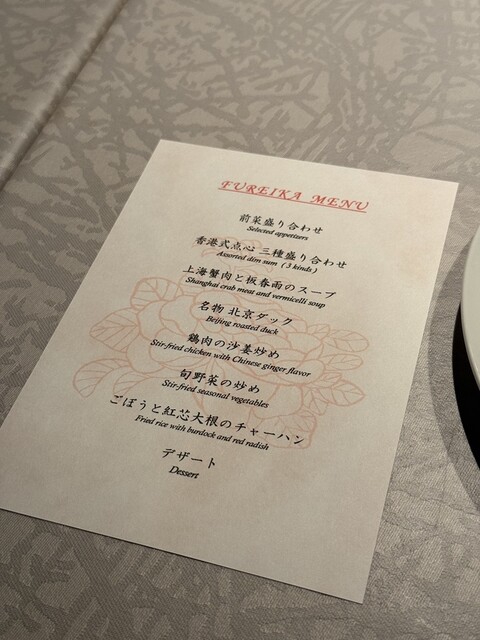 FUREIKA MENU
前菜盛り合わせ
Selected appetizers
香港式点心 三種盛り合わせ
Assorted dim sum (3 kinds)
上海蟹肉と板春雨のスープ
Shanghai crab meat and vermicelli soup
名物 北京ダック
Beijing roasted duck
鶏肉の沙姜炒め
Stir-fried chicken with Chinese ginger flavor
旬野菜の炒め
Stir-fried seasonal vegetables
ごぼうと紅芯大根のチャーハン
Fried rice with burdock and red radish
デザート
Dessert